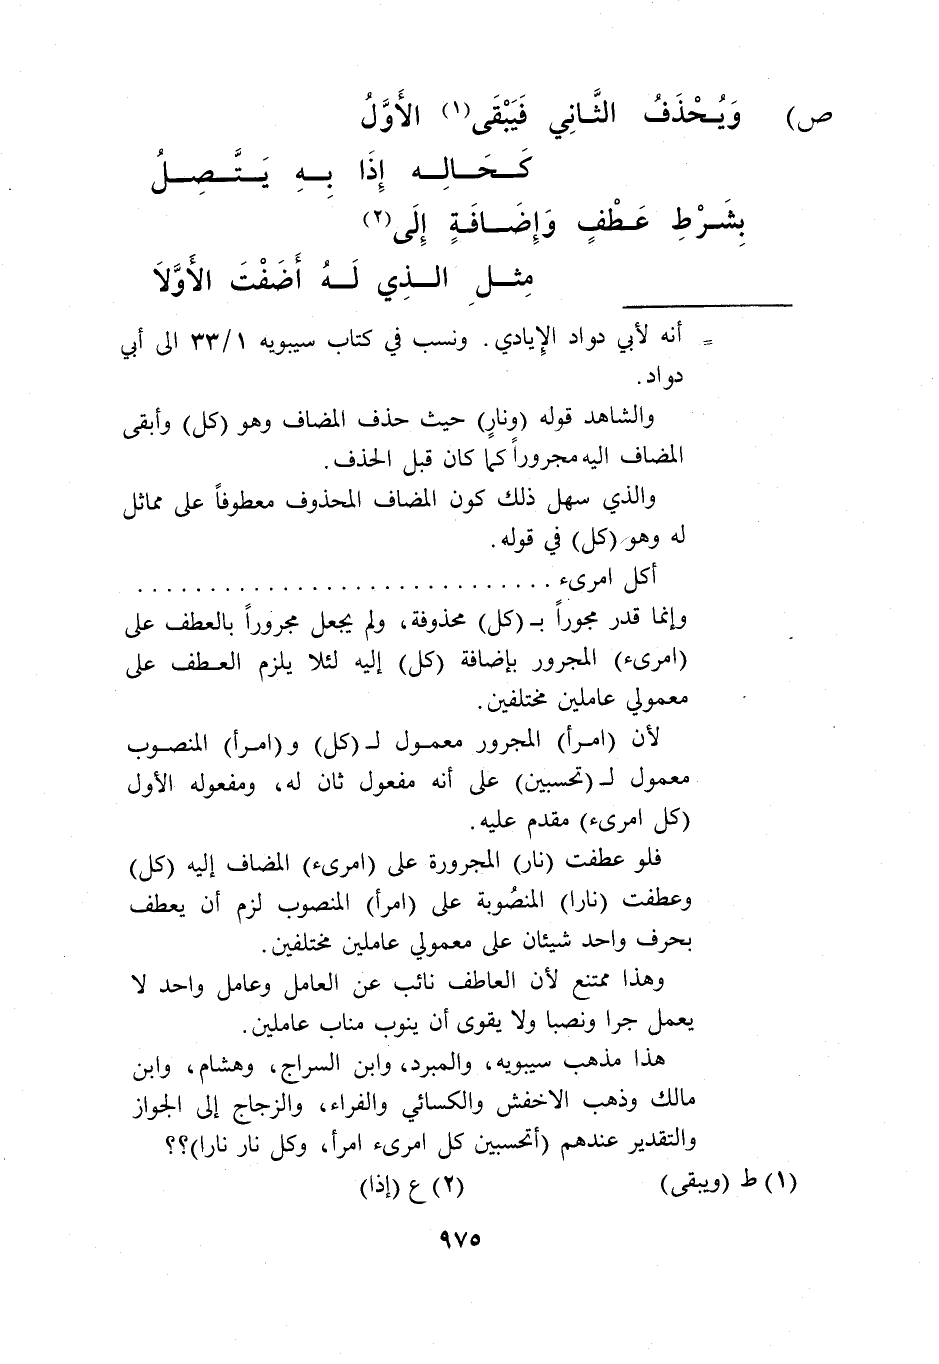 ص) وَيُحْذَفُ الثَّانِي فَيَبْقَى(١) الأَوَّلُ
كَحَالِه إِذَا بِهِ يَتَّصِلُ
بِشَرْطِ عَطْفٍ وَإِضَافَةٍ إِلَى(٢)
مِثْلِ الذِي لَهُ أَضَفْتَ الأَوَّلاَ
= أنه لأبي دواد الإيادي. ونسب في كتاب سيبويه ٣٣/١ الى أبي
دواد.
والشاهد قوله (ونارٍ) حيث حذف المضاف وهو (كل) وأبقى
المضاف اليه مجروراً كما كان قبل الحذف.
والذي سهل ذلك كون المضاف المحذوف معطوفاً على مماثل
له وهو (كل) في قوله.
أكل امرىء . . . . . . . . . . . . . . . . . . . . . . . . . . . .
وإنما قدر مجوراً بـ (كل) محذوفة، ولم يجعل مجروراً بالعطف على
(امرىء) المجرور بإضافة (كل) إليه لئلا يلزم العطف على
معمولي عاملين مختلفين.
لأن (امرأ) المجرور معمول لـ (كل) و (امرأ) المنصوب
معمول لـ (تحسبين) على أنه مفعول ثان له، ومفعوله الأول
(كل امرىء) مقدم عليه.
فلو عطفت (نار) المجرورة على (امرىء) المضاف إليه (كل)
وعطفت (نارا) المنصُوبة على (امرأ) المنصوب لزم أن يعطف
بحرف واحد شيئان على معمولي عاملين مختلفين.
وهذا ممتنع لأن العاطف نائب عن العامل وعامل واحد لا
يعمل جرا ونصبا ولا يقوى أن ينوب مناب عاملين.
هذا مذهب سيبويه، والمبرد، وابن السراج، وهشام، وابن
مالك وذهب الاخفش والكسائي والفراء، والزجاج إلى الجواز
والتقدير عندهم (أتحسبين كل امرىء امرأ، وكل نار نارا)؟؟
(١) ط (ويبقى) (٢) ع (إذا)
٩٧٥